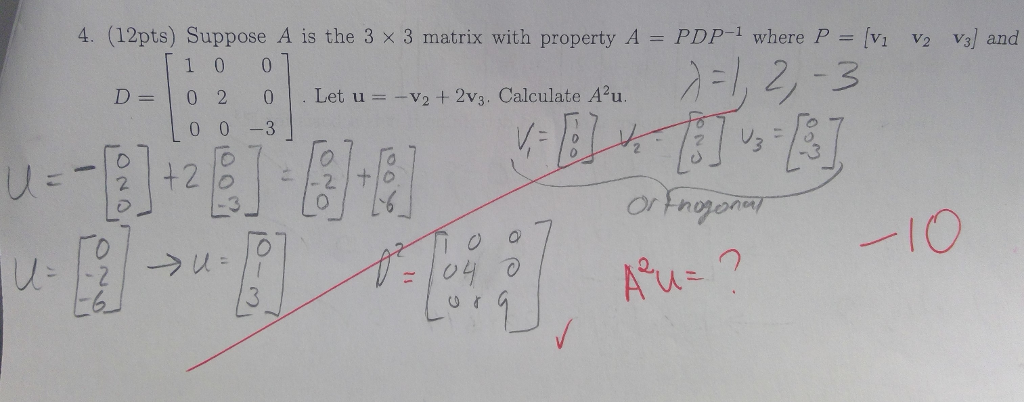 4. (12pts) Suppose A is the 3 × 3 matrix with property A = PDP⁻¹ where P = [v₁ v₂ v₃] and
D = [1 0 0; 0 2 0; 0 0 −3]. Let u = −v₂ + 2v₃. Calculate A²u.
λ=1, 2, -3
V₁ = [1 0 0] V₂ = [0 2 0] V₃ = [0 0 -3]
Orthogonal
U = -[0 2 0] + 2[0 0 -3] = [0 -2 0] + [0 0 -6]
U = [0 -2 -6] → u = [0 1 3]
D² = [1 0 0; 0 4 0; 0 0 9] ✓
A²u = ?
-10